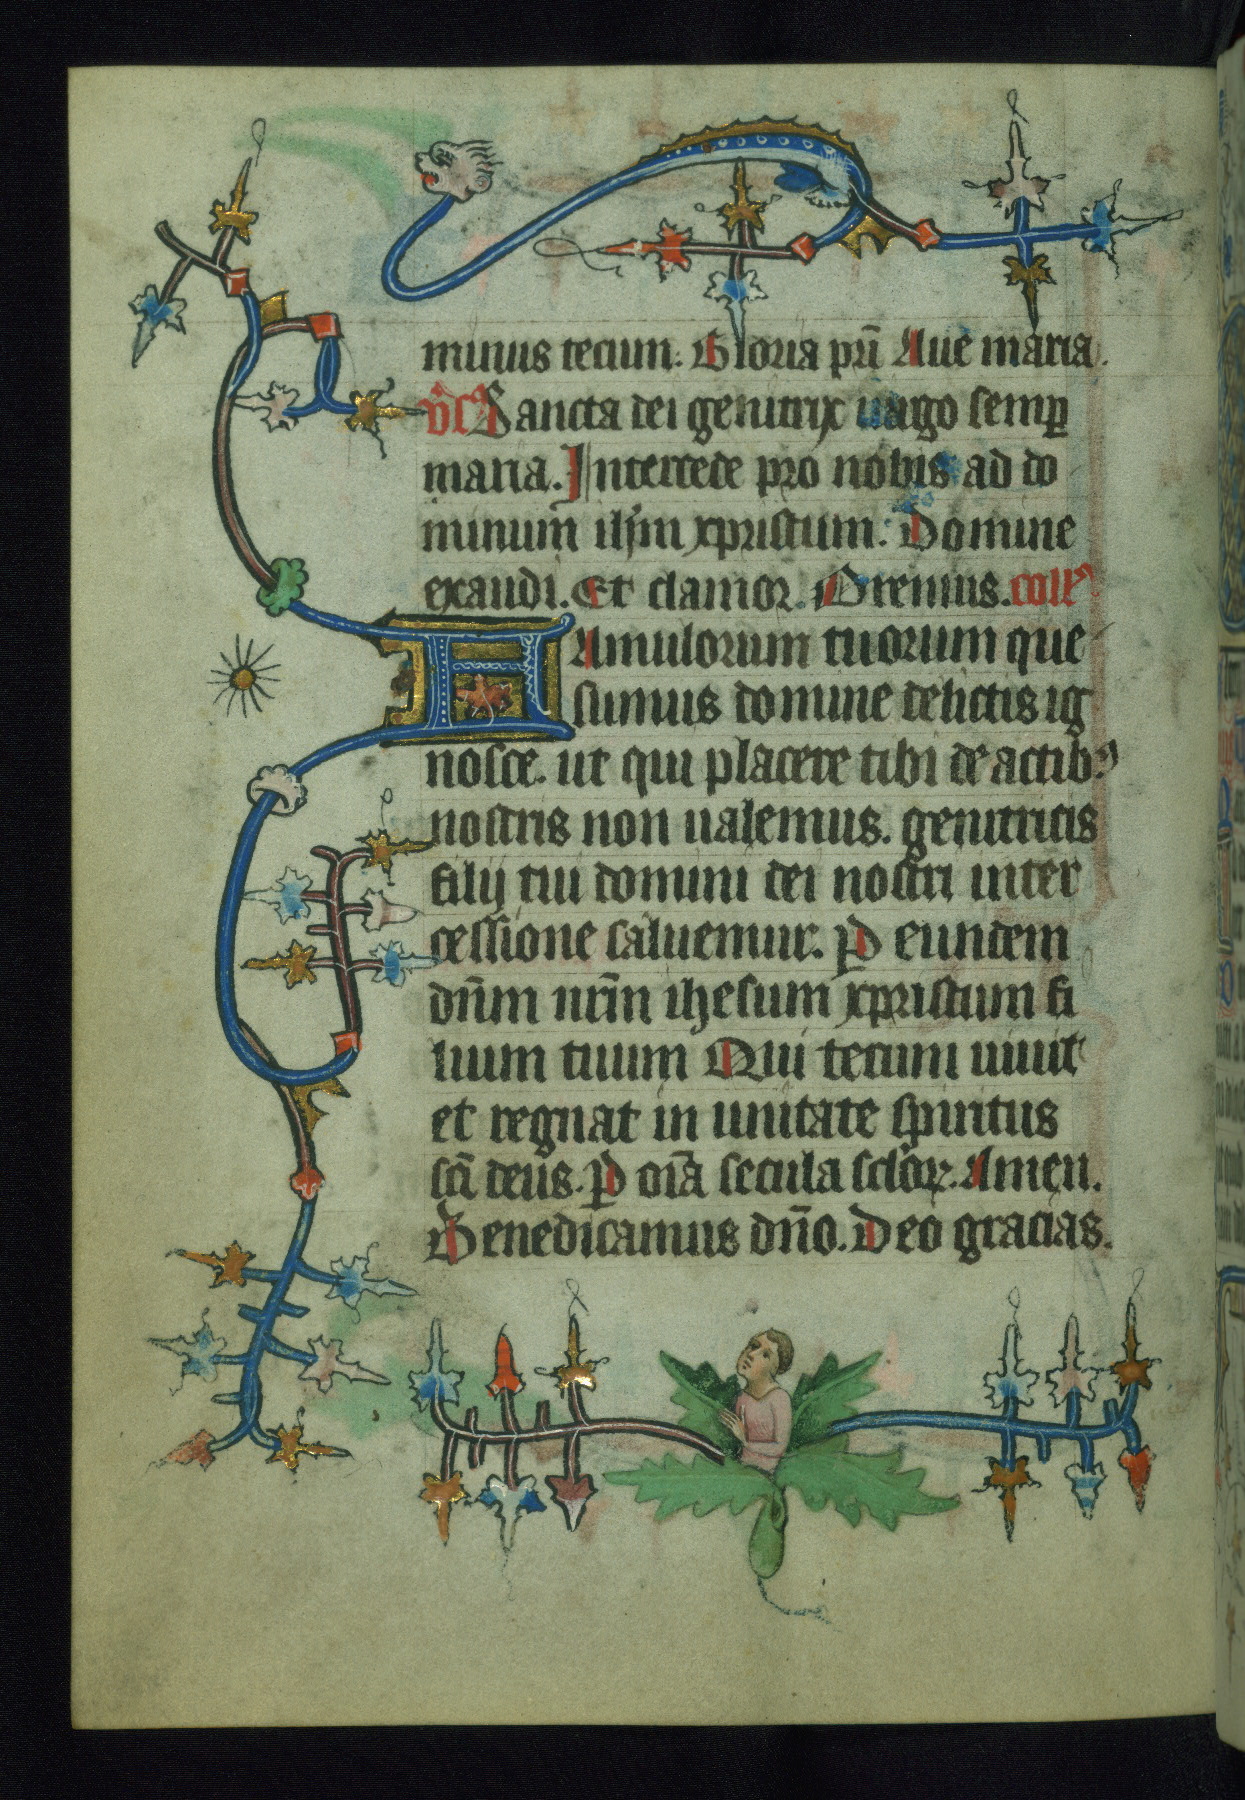 minus tecum. Gloria pr̄i Aue maria.
v̄s Sancta dei genitrix uirgo semꝑ
maria. Intercede pro nobis ad do
minum ihm xpristum. Domine
exaudi. Et clamor. Oremus. coll'
Famulorum tuorum que
sumus domine delictis ig
nosce. ut qui placere tibi de actibꝰ
nostris non ualemus. genitricis
filij tui domini dei nostri inter
cessione saluemur. P eundem
dn̄m nr̄m ihesum xpristum fi
lium tuum Qui tecum uiuit
et regnat in unitate spiritus
sc̄i deus. P oīa secula sclōꝝ. Amen.
Benedicamus dn̄o. Deo gracias.